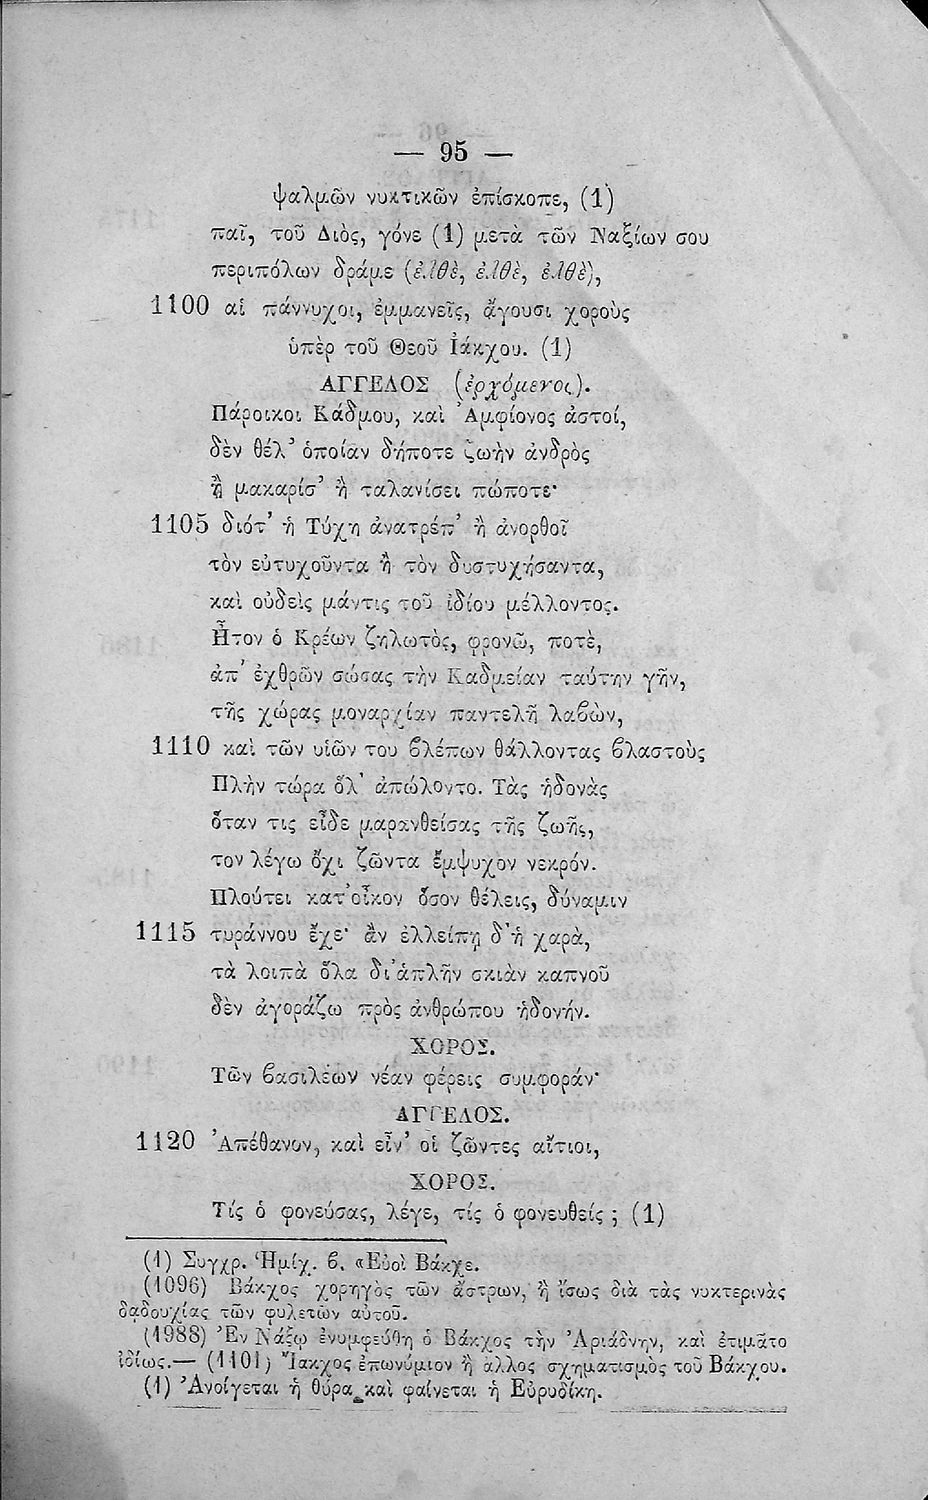 — 95 —
ψαλμῶν νυκτικῶν ἐπίσκοπε, (1)
παῖ, τοῦ Διὸς, γόνε (1) μετὰ τῶν Ναξίων σου
περιπόλων δράμε (ἐλθὲ, ἐλθὲ, ἐλθὲ),
1100 αἱ πάννυχοι, ἐμμανεῖς, ἄγουσι χοροὺς
ὑπὲρ τοῦ Θεοῦ Ἰάκχου. (1)
ΑΓΓΕΛΟΣ (ἐρχόμενος).
Πάροικοι Κάδμου, καὶ Ἀμφίονος ἀστοί,
δὲν θέλ’ ὁποίαν δήποτε ζωὴν ἀνδρὸς
ἢ μακαρίσ’ ἢ ταλανίσει πώποτε·
1105 διότ’ ἡ Τύχη ἀνατρέπ’ ἢ ἀνορθοῖ
τὸν εὐτυχοῦντα ἢ τὸν δυστυχήσαντα,
καὶ οὐδεὶς μάντις τοῦ ἰδίου μέλλοντος.
Ἦτον ὁ Κρέων ζηλωτὸς, φρονῶ, ποτὲ,
ἀπ’ ἐχθρῶν σώσας τὴν Καδμείαν ταύτην γῆν,
τῆς χώρας μοναρχίαν παντελῆ λαβὼν,
1110 καὶ τῶν υἱῶν του βλέπων θάλλοντας βλαστοὺς
Πλὴν τώρα ὅλ’ ἀπώλοντο. Τὰς ἡδονὰς
ὅταν τις εἶδε μαρανθείσας τῆς ζωῆς,
τον λέγω ὄχι ζῶντα ἔμψυχον νεκρόν.
Πλούτει κατ’ οἶκον ὅσον θέλεις, δύναμιν
1115 τυράννου ἔχε· ἂν ἐλλείπῃ δ’ ἡ χαρὰ,
τὰ λοιπὰ ὅλα δι’ ἁπλῆν σκιὰν καπνοῦ
δὲν ἀγοράζω πρὸς ἀνθρώπου ἡδονήν.
ΧΟΡΟΣ.
Τῶν βασιλέων νέαν φέρεις συμφοράν·
ΑΓΓΕΛΟΣ.
1120 Ἀπέθανον, καὶ εἶν’ οἱ ζῶντες αἴτιοι,
ΧΟΡΟΣ.
Τίς ὁ φονεύσας, λέγε, τίς ὁ φονευθείς ; (1)
(1) Συγχρ. Ἡμίχ. β. «Εὐοὶ Βάκχε.
(1096) Βάκχος χορηγὸς τῶν ἄστρων, ἢ ἴσως διὰ τὰς νυκτερινὰς
δᾳδουχίας τῶν φυλετῶν αὐτοῦ.
(1988) Ἐν Νάξῳ ἐνυμφεύθη ὁ Βάκχος τὴν Ἀριάδνην, καὶ ἐτιμᾶτο
ἰδίως.— (1101) Ἴακχος ἐπωνύμιον ἢ ἄλλος σχηματισμὸς τοῦ Βάκχου.
(1) Ἀνοίγεται ἡ θύρα καὶ φαίνεται ἡ Εὐρυδίκη.